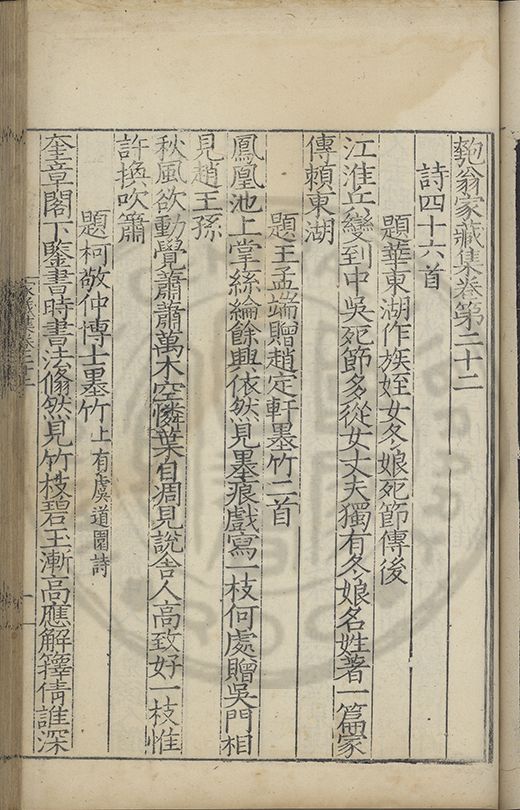 匏翁家藏集卷第二十二
詩四十六首
題華東湖作族姪女冬娘死節傳後
江淮兵變到中吳死節多從女丈夫獨有冬娘名姓著一篇家
傳賴東湖
題王孟端贈趙定軒墨竹二首
鳳凰池上掌絲綸餘興依然見墨痕戲寫一枝何處贈吳門相
見趙王孫
秋風欲動覺蕭蕭萬木空憐葉自凋見說舍人高致好一枝惟
許換吹簫
題柯敬仲博士墨竹上有虞道園詩
奎章閣下鑒書時書法翛然見竹枝碧玉漸高應解籜倩誰深